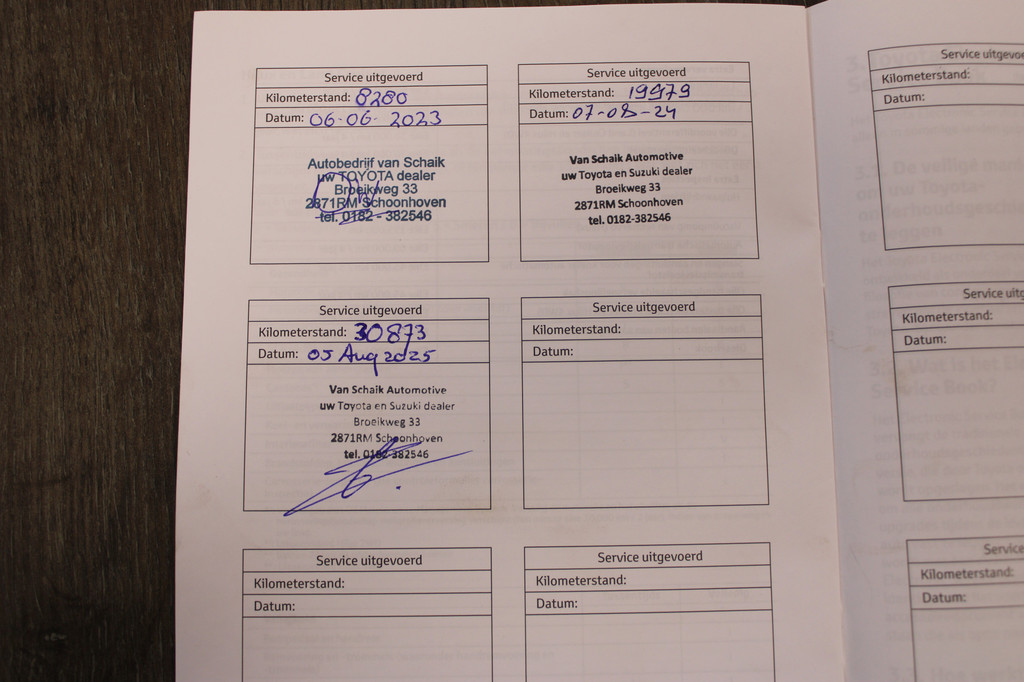 Service uitgevoerd
Kilometerstand: 8280
Datum: 06-06-2023
Autobedrijf van Schaik
uw TOYOTA dealer
Broeikweg 33
2871RM Schoonhoven
tel. 0182 - 382546
Service uitgevoerd
Kilometerstand: 19979
Datum: 07-08-24
Van Schaik Automotive
uw Toyota en Suzuki dealer
Broeikweg 33
2871RM Schoonhoven
tel. 0182-382546
Service uitgevoerd
Kilometerstand: 30873
Datum: 05 Aug 2025
Van Schaik Automotive
uw Toyota en Suzuki dealer
Broeikweg 33
2871RM Schoonhoven
tel. 0182-382546
Service uitgevoerd
Kilometerstand:
Datum:
Service uitgevoerd
Kilometerstand:
Datum:
Service uitgevoerd
Kilometerstand:
Datum:
Service uitgevoe
Kilometerstand:
Datum:
Service uitg
Kilometerstand:
Datum:
Service
Kilometerstand:
Datum: